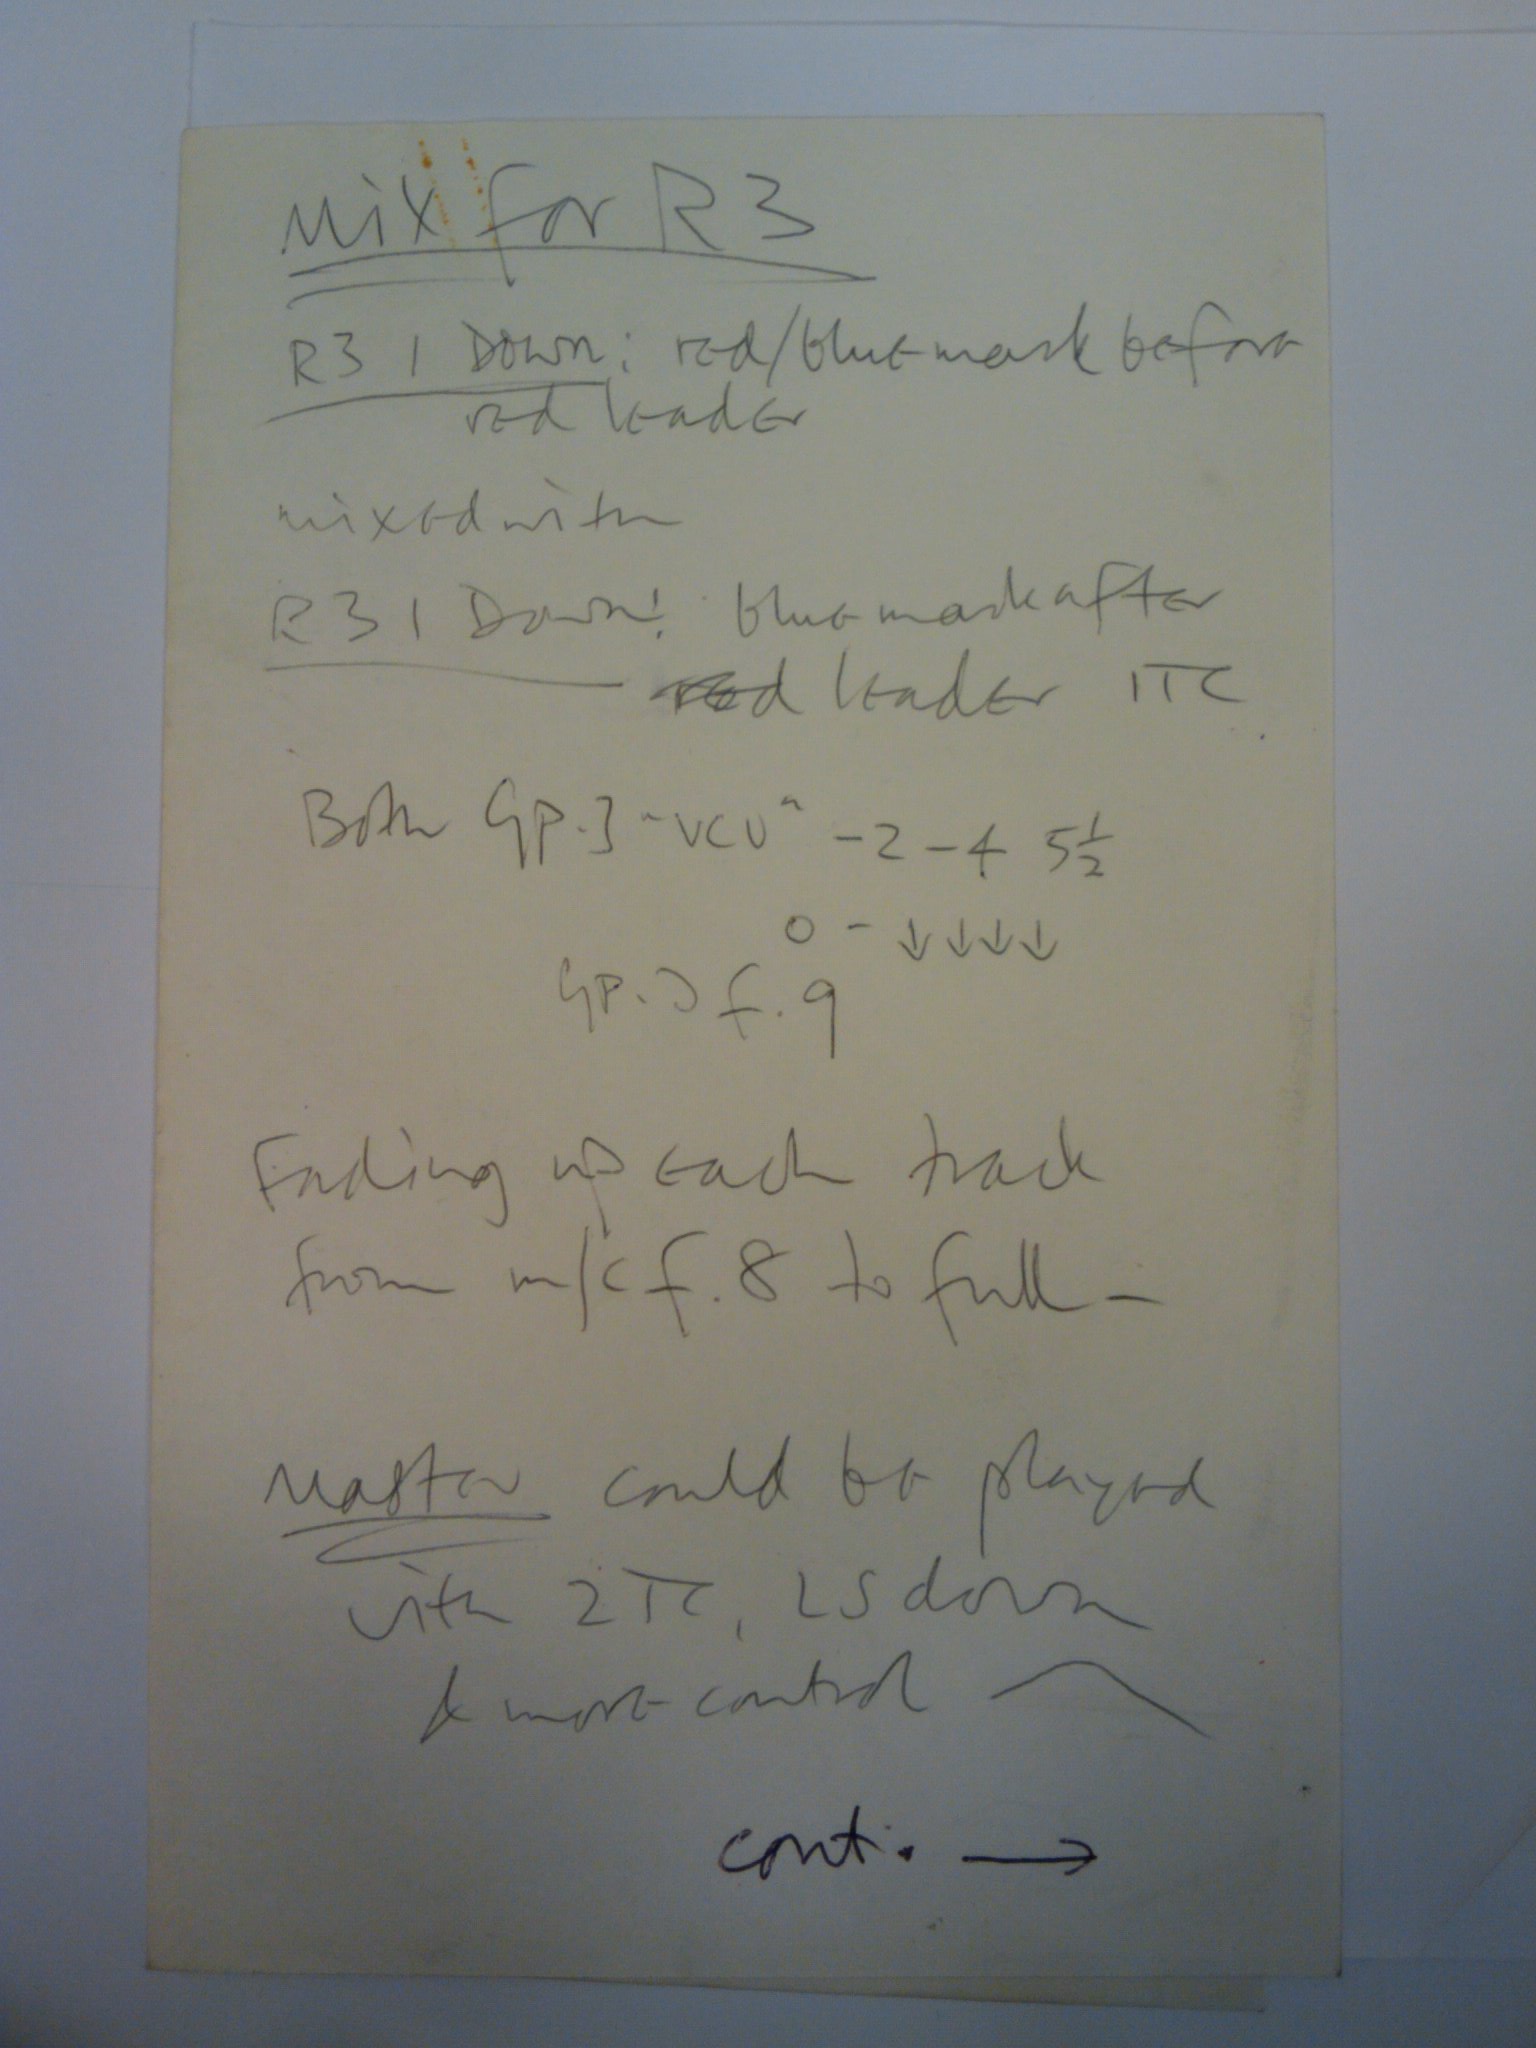 Mix for R3
R3 1 Down: red/blue mark before
red leader
mixed with
R3 1 Down: blue mark after
red leader 1TC
Both GP.3 "VCU" -2 -4 5½
0 - ↓↓↓↓
GP.3 f.9
Fading up each track
from m/c f.8 to full -
Master could be played
with 2TC, LS down
& more control
cont. →